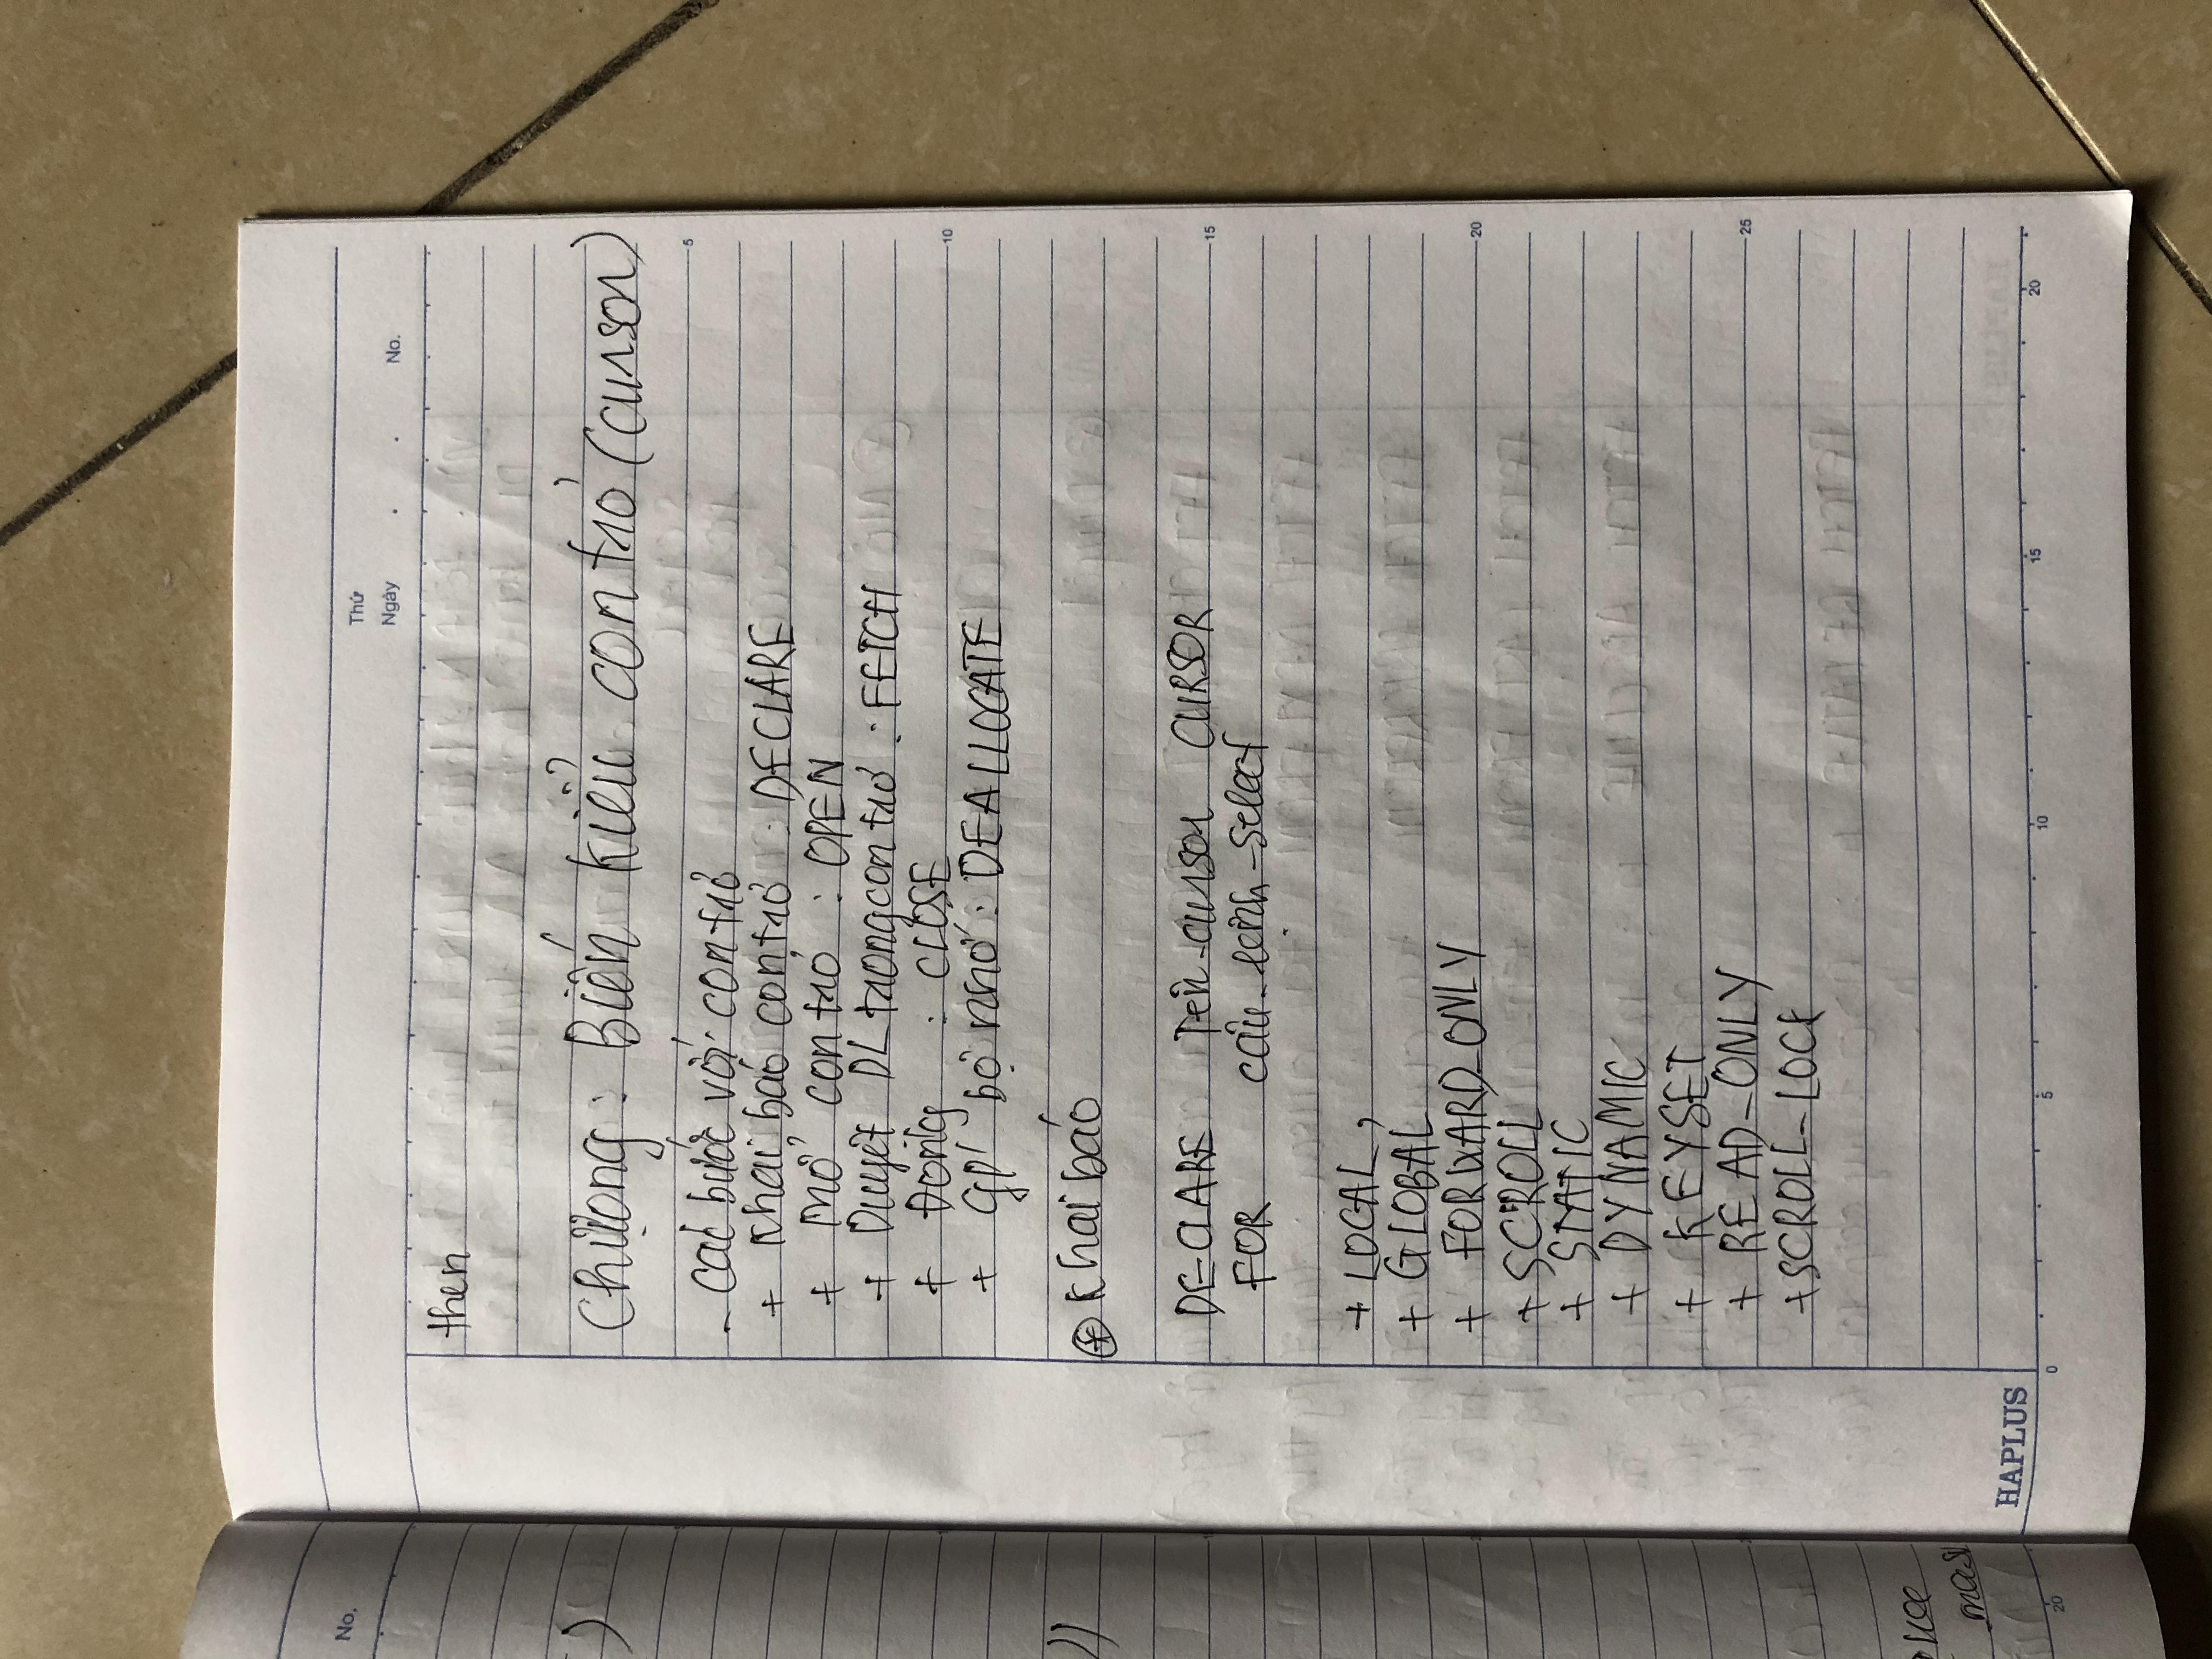 No.
Thứ
Ngày . . No.
then
Chương : Biến kiểu con trỏ (cursor)
- Các bước với con trỏ
+ Khai báo con trỏ : DECLARE
+ Mở con trỏ : OPEN
+ Duyệt DL trong con trỏ : FETCH
+ Đóng : CLOSE
+ GP' bộ nhớ : DEALLOCATE
⊛ Khai báo
DECLARE Tên_cursor CURSOR
FOR câu_lệnh_select
+ LOCAL,
+ GLOBAL
+ FORWARD_ONLY
+ SCROLL
+ STATIC
+ DYNAMIC
+ KEYSET
+ READ_ONLY
+ SCROLL_LOCK
HAPLUS
5
10
15
20
25
0 5 10 15 20
20